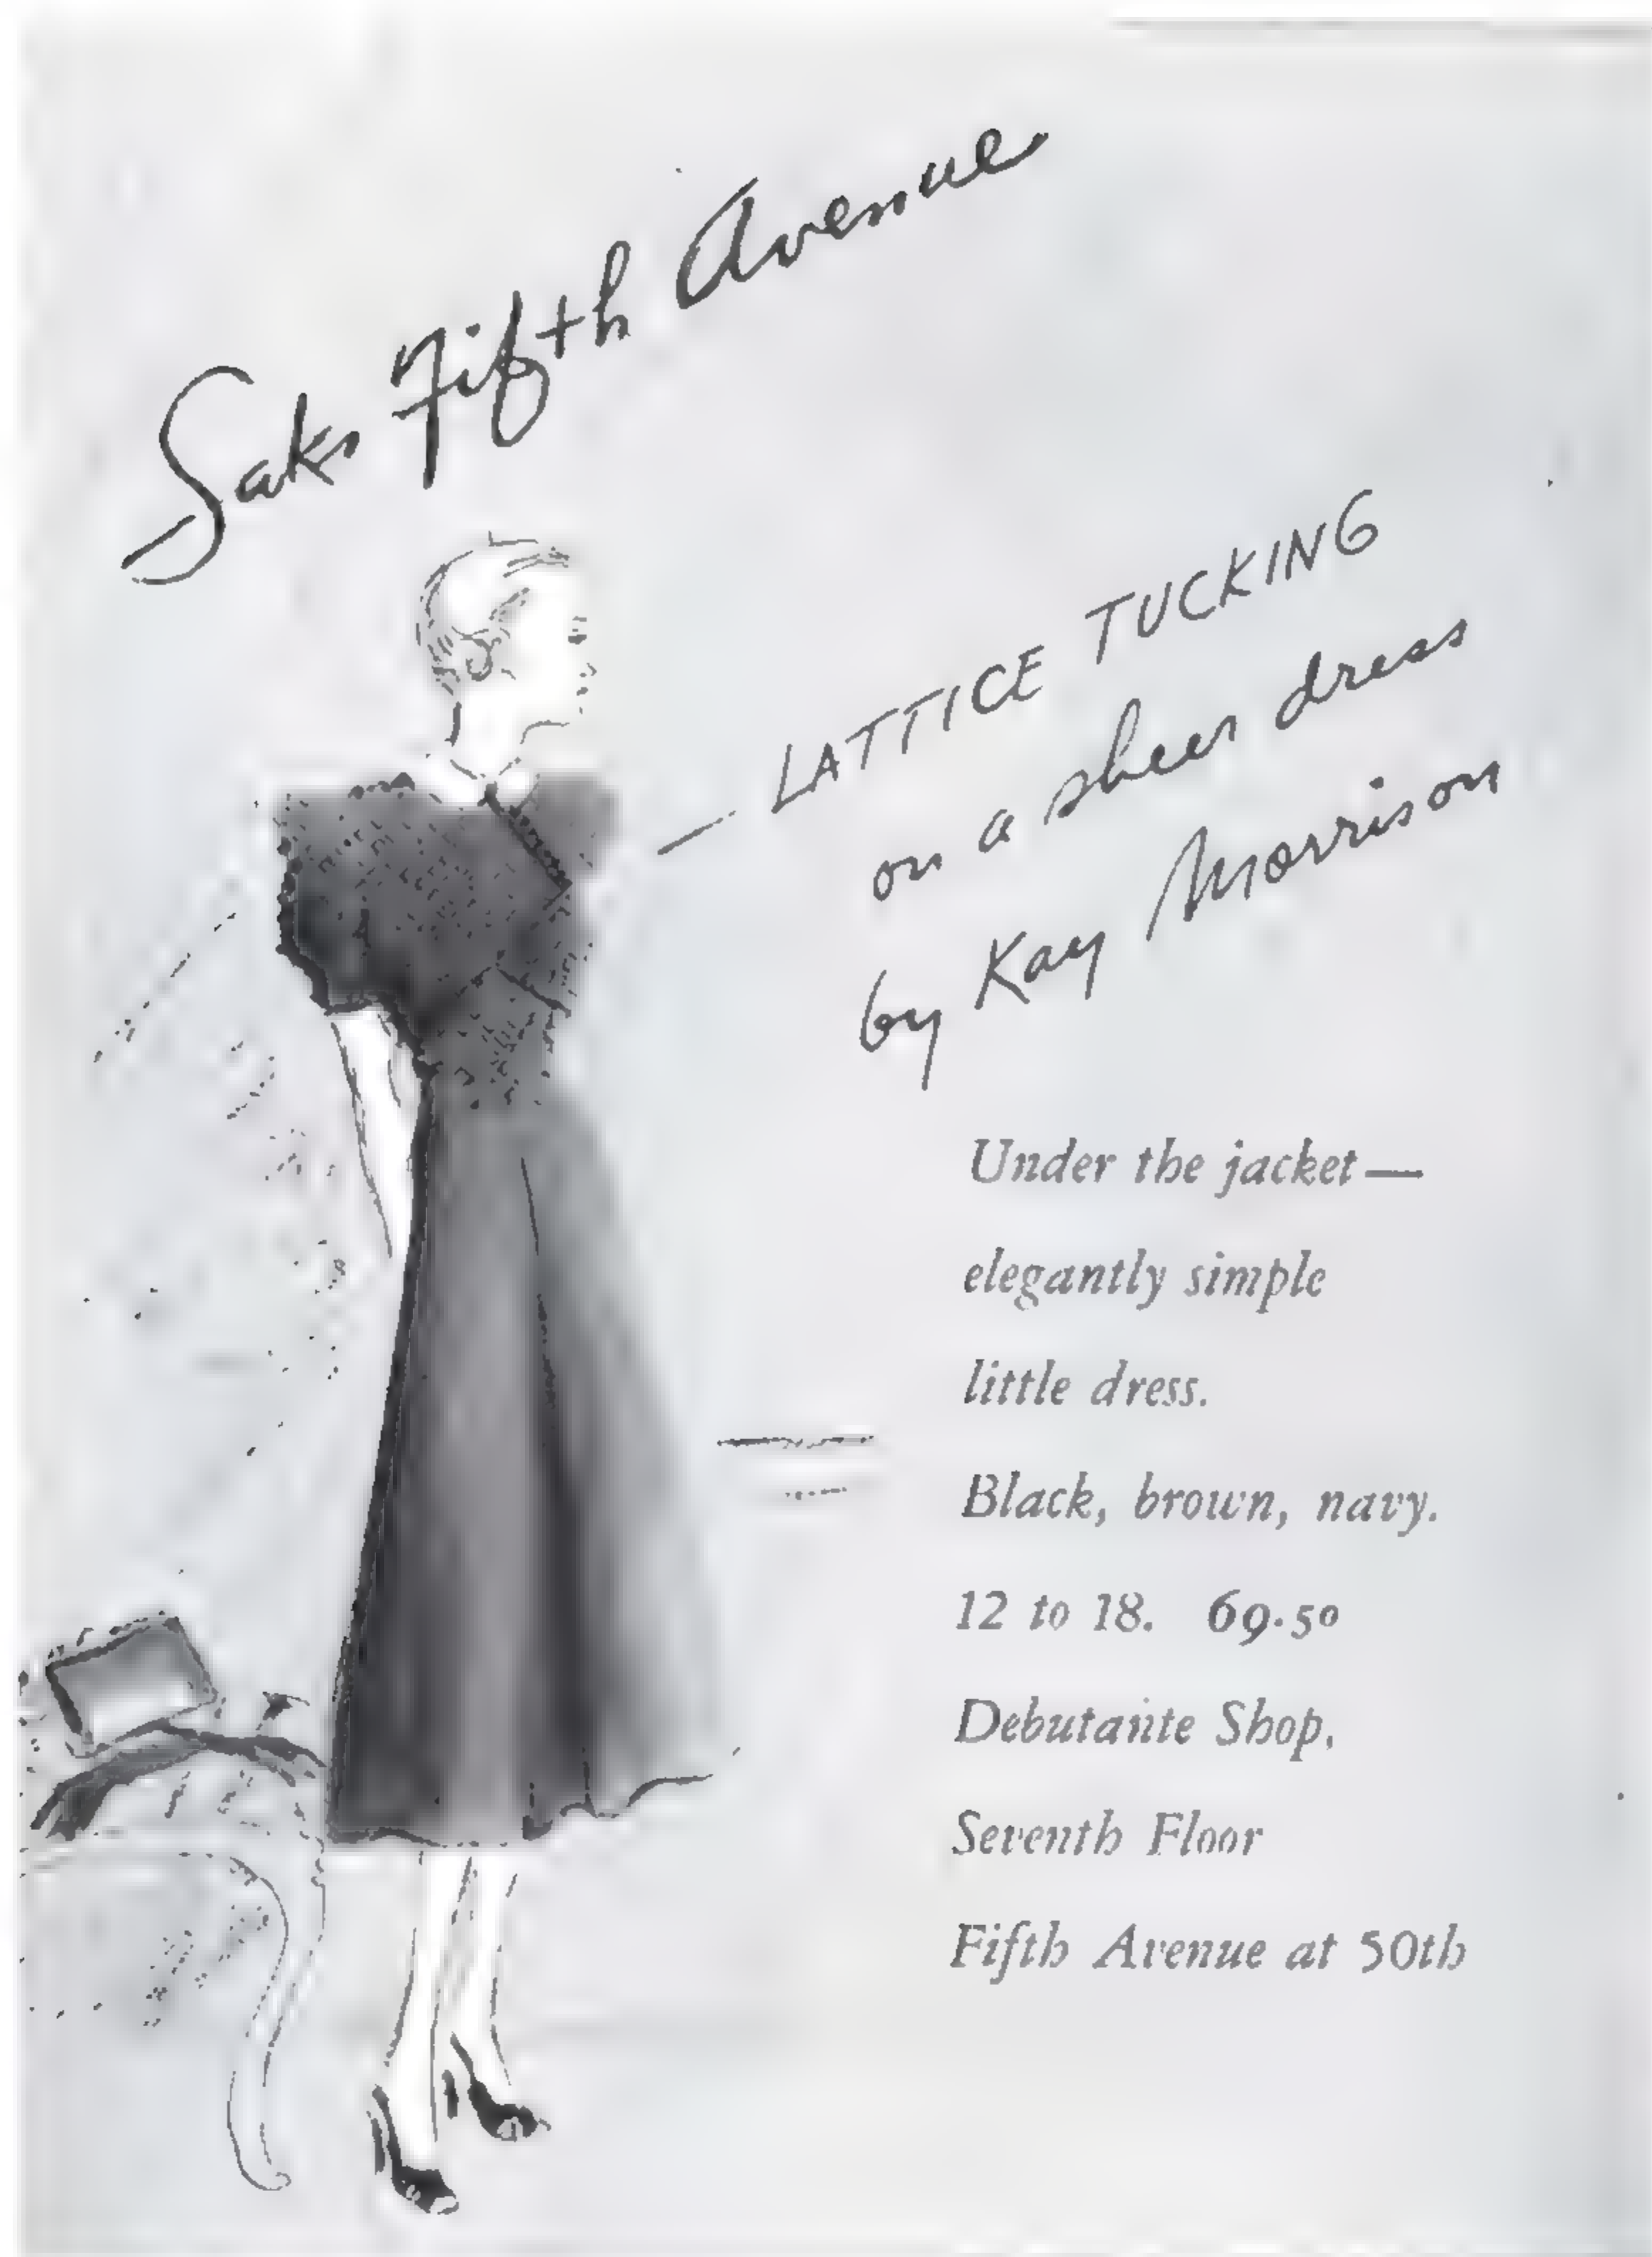 Saks Fifth Avenue
— LATTICE TUCKING
on a sheer dress
by Kay Morrison
Under the jacket—
elegantly simple
little dress.
Black, brown, navy.
12 to 18. 69.50
Debutante Shop,
Seventh Floor
Fifth Avenue at 50th